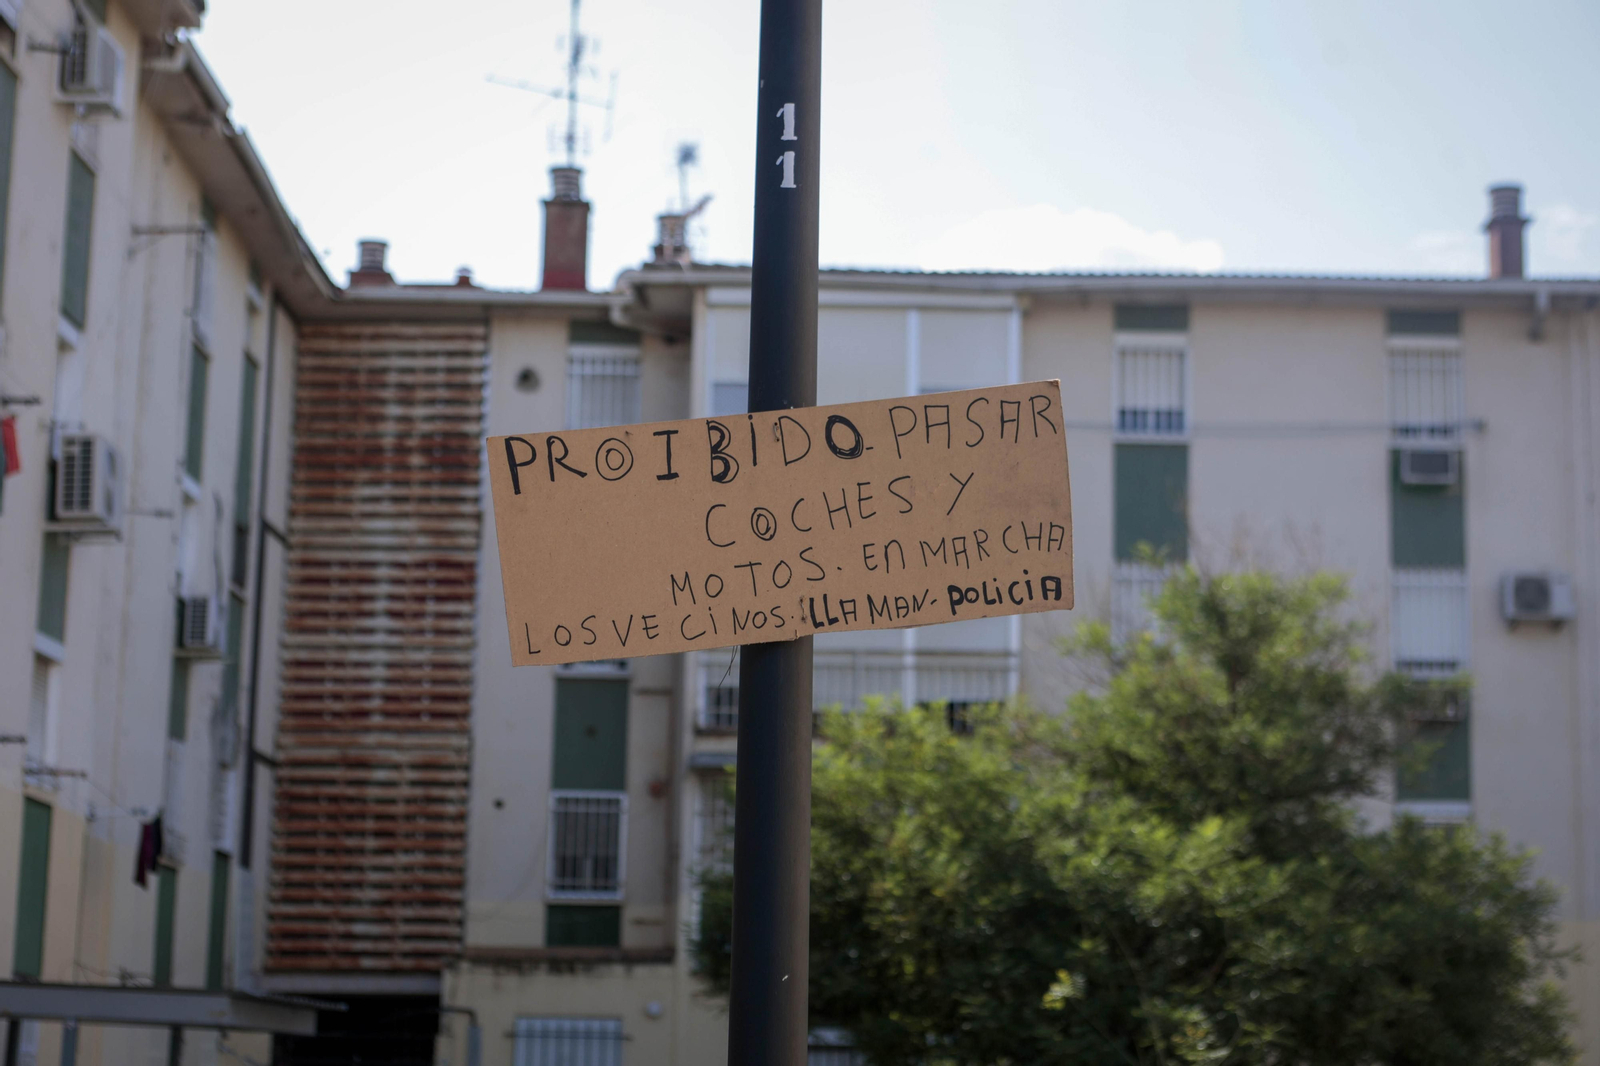 1
1
PROIBiDO. PASAR
COCHES Y
MOTOS. EN MARCHA
LOS VECiNOS. LLAMAN- POLiCiA